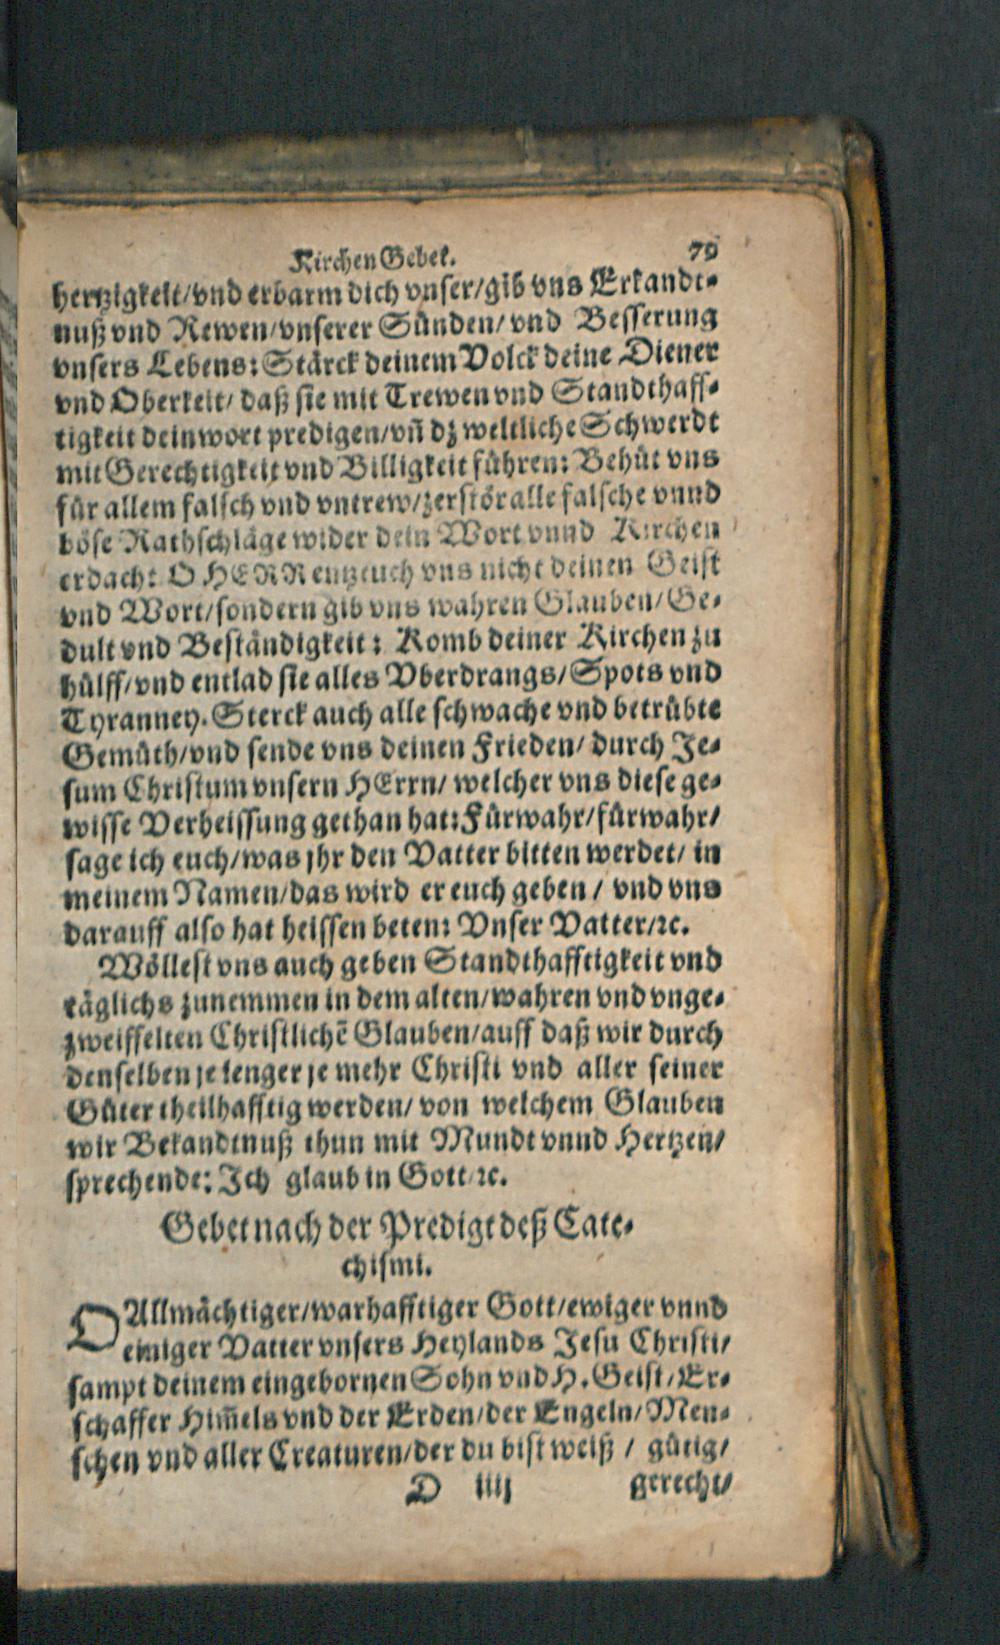 Kirchen Gebet. 79
hertzigkeit/vnd erbarm dich vnser/gib vns Erkandt-
nuß vnd Rewen/vnserer Sünden/vnd Besserung
vnsers Lebens: Stärck deinem Volck deine Diener
vnd Oberkeit/ daß sie mit Trewen vnd Standthaff-
tigkeit dein wort predigen/vñ dz weltliche Schwerdt
mit Gerechtigkeit vnd Billigkeit führen: Behüt vns
für allem falsch vnd vntrew/zerstör alle falsche vnnd
böse Rathschläge wider dein Wort vnnd Kirchen
erdacht: O HERR entzeuch vns nicht deinen Geist
vnd Wort/sondern gib vns wahren Glauben/Ge-
dult vnd Beständigkeit: Komb deiner Kirchen zu
hülff/vnd entlad sie alles Vberdrangs/Spots vnd
Tyranney. Sterck auch alle schwache vnd betrübte
Gemüth/vnd sende vns deinen Frieden/durch Je-
sum Christum vnsern HErrn/ welcher vns diese ge-
wisse Verheissung gethan hat: Fürwahr/fürwahr/
sage ich euch/was jhr den Vatter bitten werdet/ in
meinem Namen/das wird er euch geben / vnd vns
darauff also hat heissen beten: Vnser Vatter/ꝛc.
Wöllest vns auch geben Standthafftigkeit vnd
täglichs zunemmen in dem alten/wahren vnd vnge-
zweiffelten Christlichẽ Glauben/auff daß wir durch
denselben je lenger je mehr Christi vnd aller seiner
Güter theilhafftig werden/ von welchem Glauben
wir Bekandtnuß thun mit Mundt vnnd Hertzen/
sprechende: Jch glaub in Gott ꝛc.
Gebet nach der Predigt deß Cate-
chismi.
O Allmächtiger/warhafftiger Gott/ewiger vnnd
einiger Vatter vnsers Heylands Jesu Christi/
sampt deinem eingebornen Sohn vnd H. Geist/Er-
schaffer Him̃els vnd der Erden/der Engeln/Men-
schen vnd aller Creaturen/der du bist weiß / gütig/
D iiij gerecht/